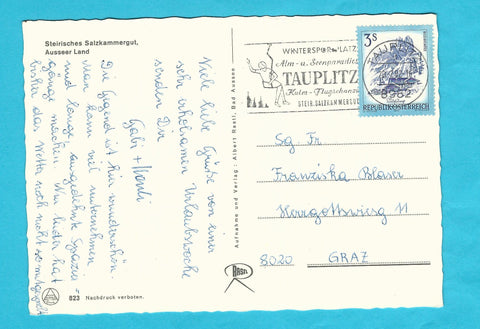 Steirisches Salzkammergut,
Ausseer Land
Viele liebe Grüße von einer
sehr erholsamen Urlaubswoche
senden Dir
Gabi +
Die Gegend ist hier wunderschön.
Man kann viel unternehmen
und lange ausgedehnte Spazier-
gänge machen. Nur leider hat
bisher das Wetter noch nicht so mitgespielt
823 Nachdruck verboten.
Aufnahme und Verlag: Albert Rastl, Bad Aussee
RASTL
WINTERSPORTPLATZ
Alm- u. Seenparadies
TAUPLITZ
Kulm - Flugschanze
STEIR. SALZKAMMERGUT
TAUPLITZ
8982
3S
REPUBLIK ÖSTERREICH
Sg. Fr.
Franziska Blaser
Herrgottwiesg 11
8020 GRAZ